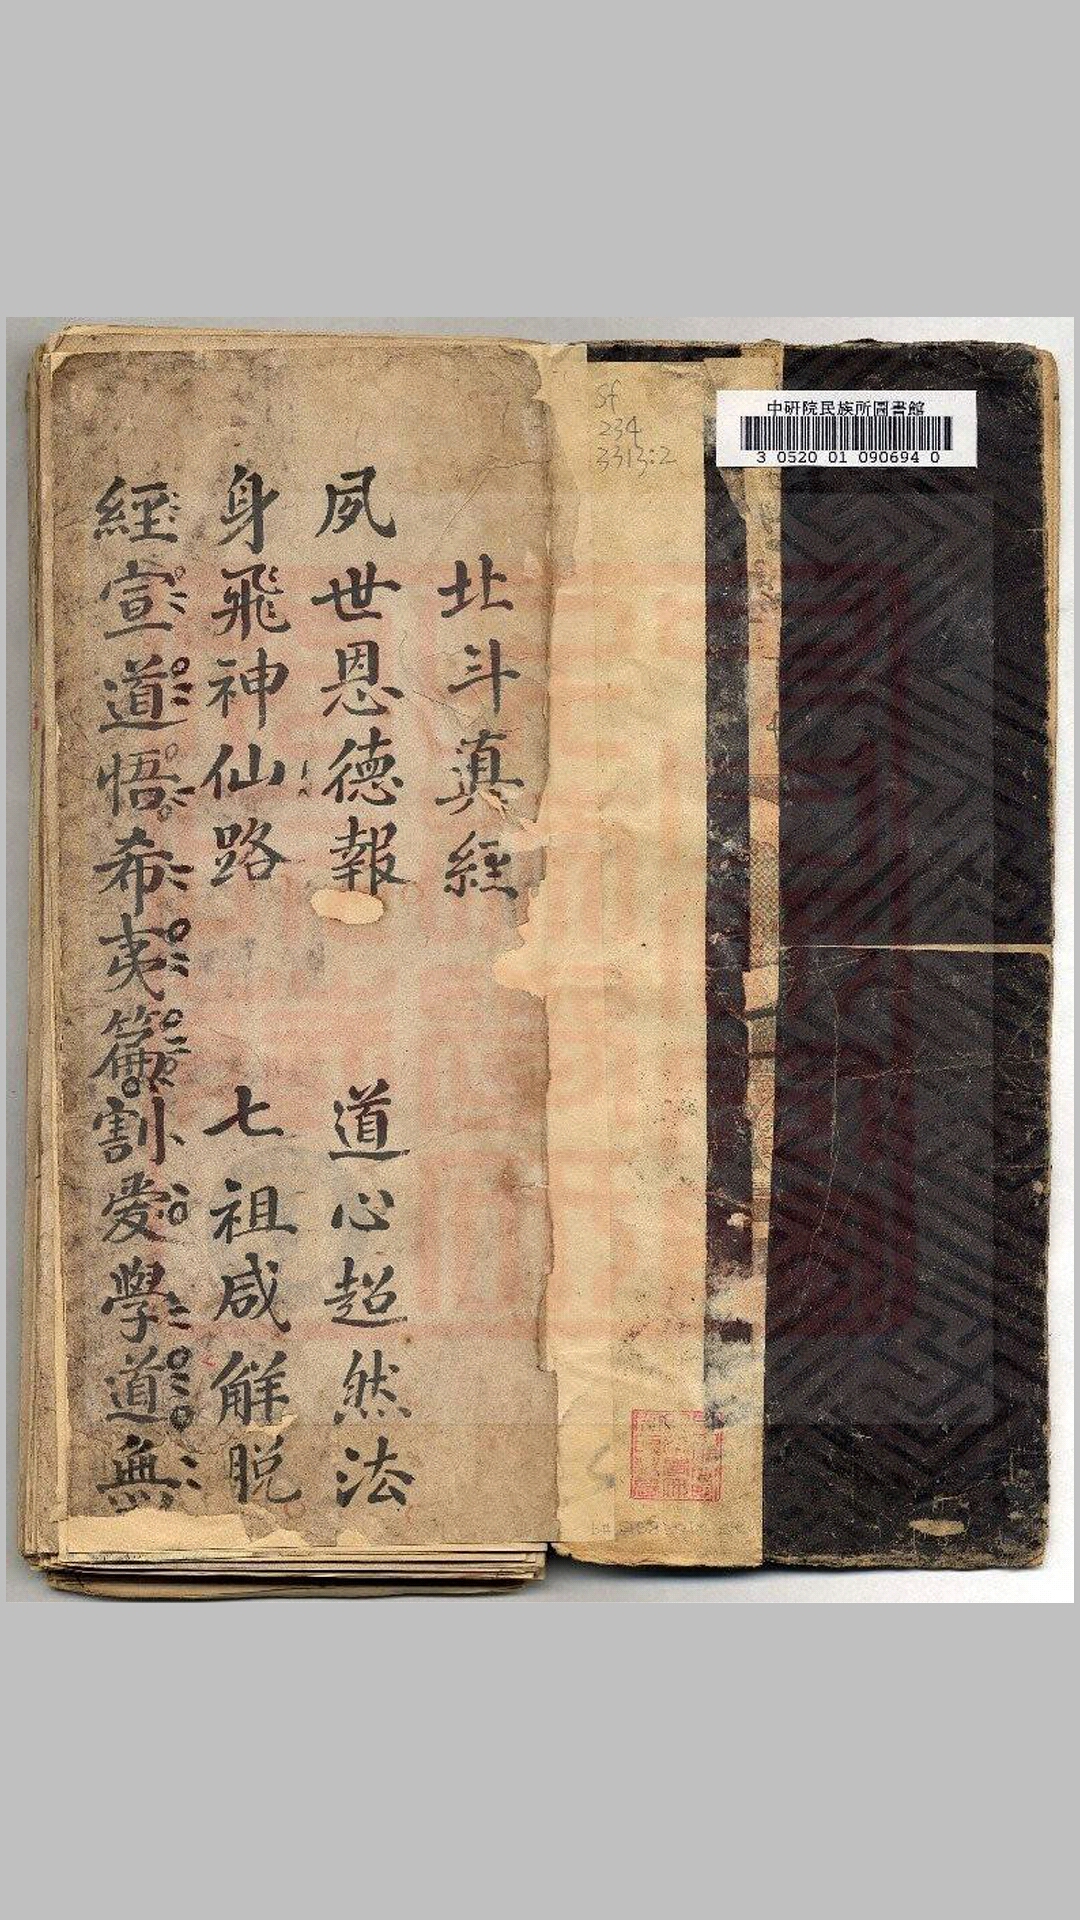 中研院民族所圖書館
3 0520 01 090694 0
Sf
234
3313:2
北斗真經
夙世恩德報 道心超然法
身飛神仙路 七祖咸解脱
經宣道悟希夷 割愛學道無